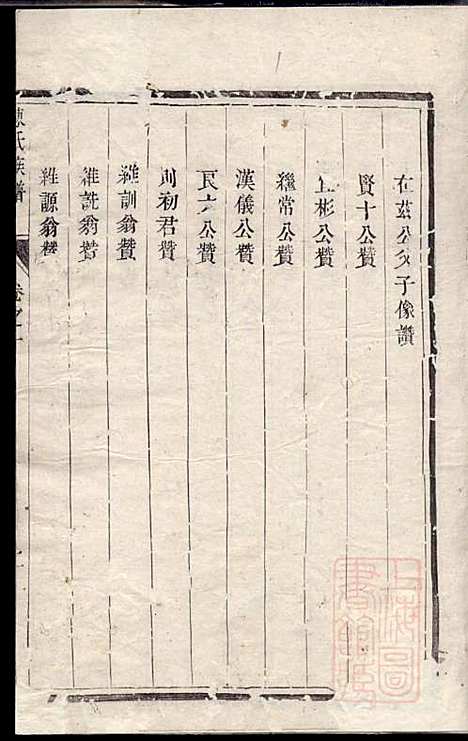 在茲公父子像讚
賢十公贊
彬公贊
繼常公贊
漢儀公贊
良六公贊
則初君贊
維訓翁贊
維詵翁贊
維源翁贊
陳氏族譜
卷之一
上海圖書館藏